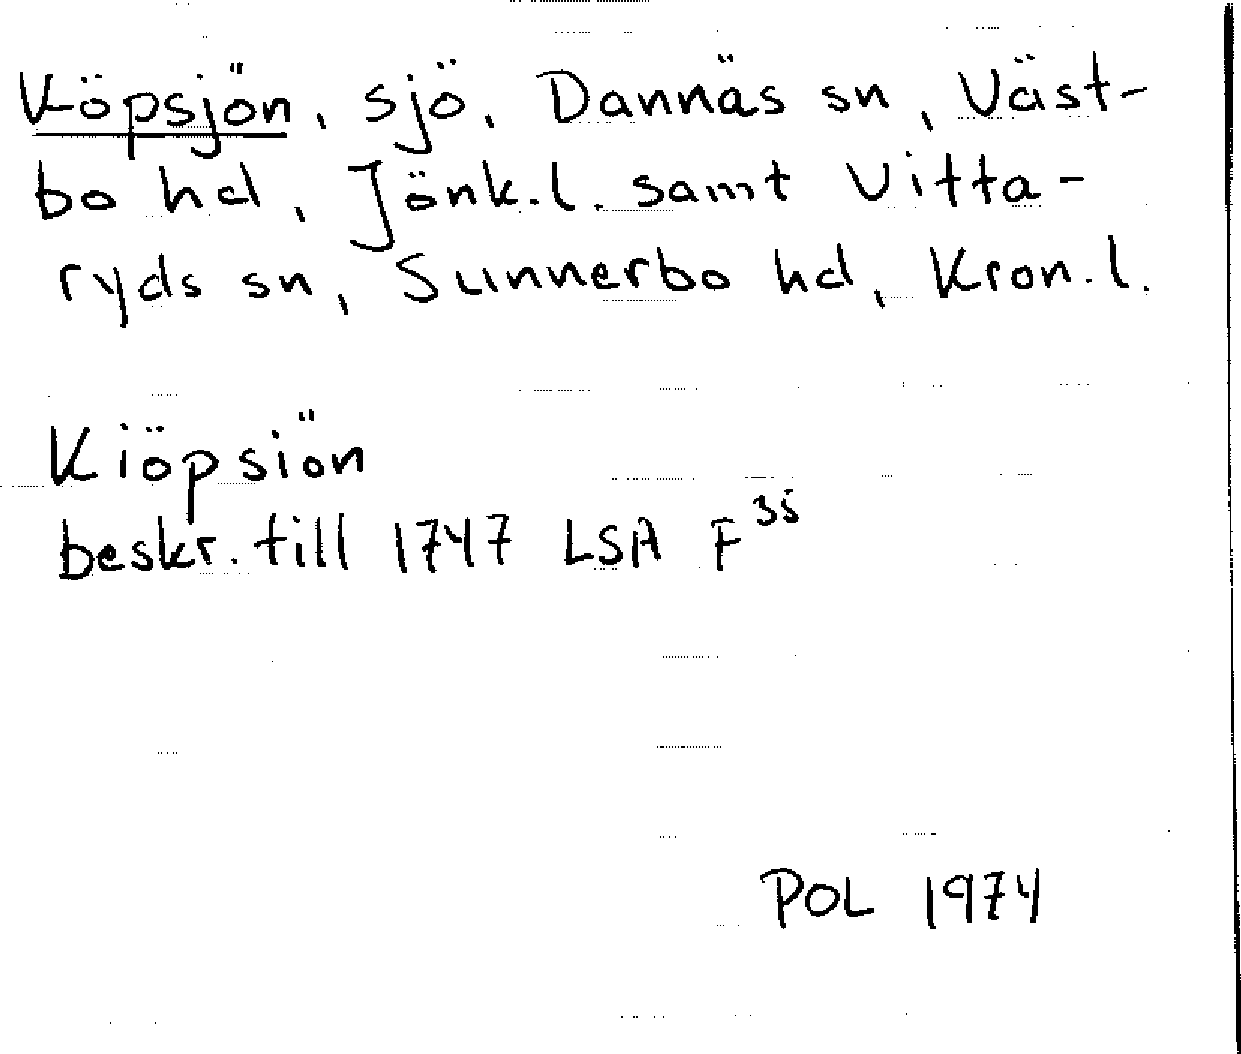 Köpsjön, sjö, Dannäs sn, Väst-
bo hd, Jönk.l. samt Vitta-
ryds sn, Sunnerbo hd, Kron.l.
Kiöpsiön
beskr. till 1747 LSA F³⁵
POL 1974